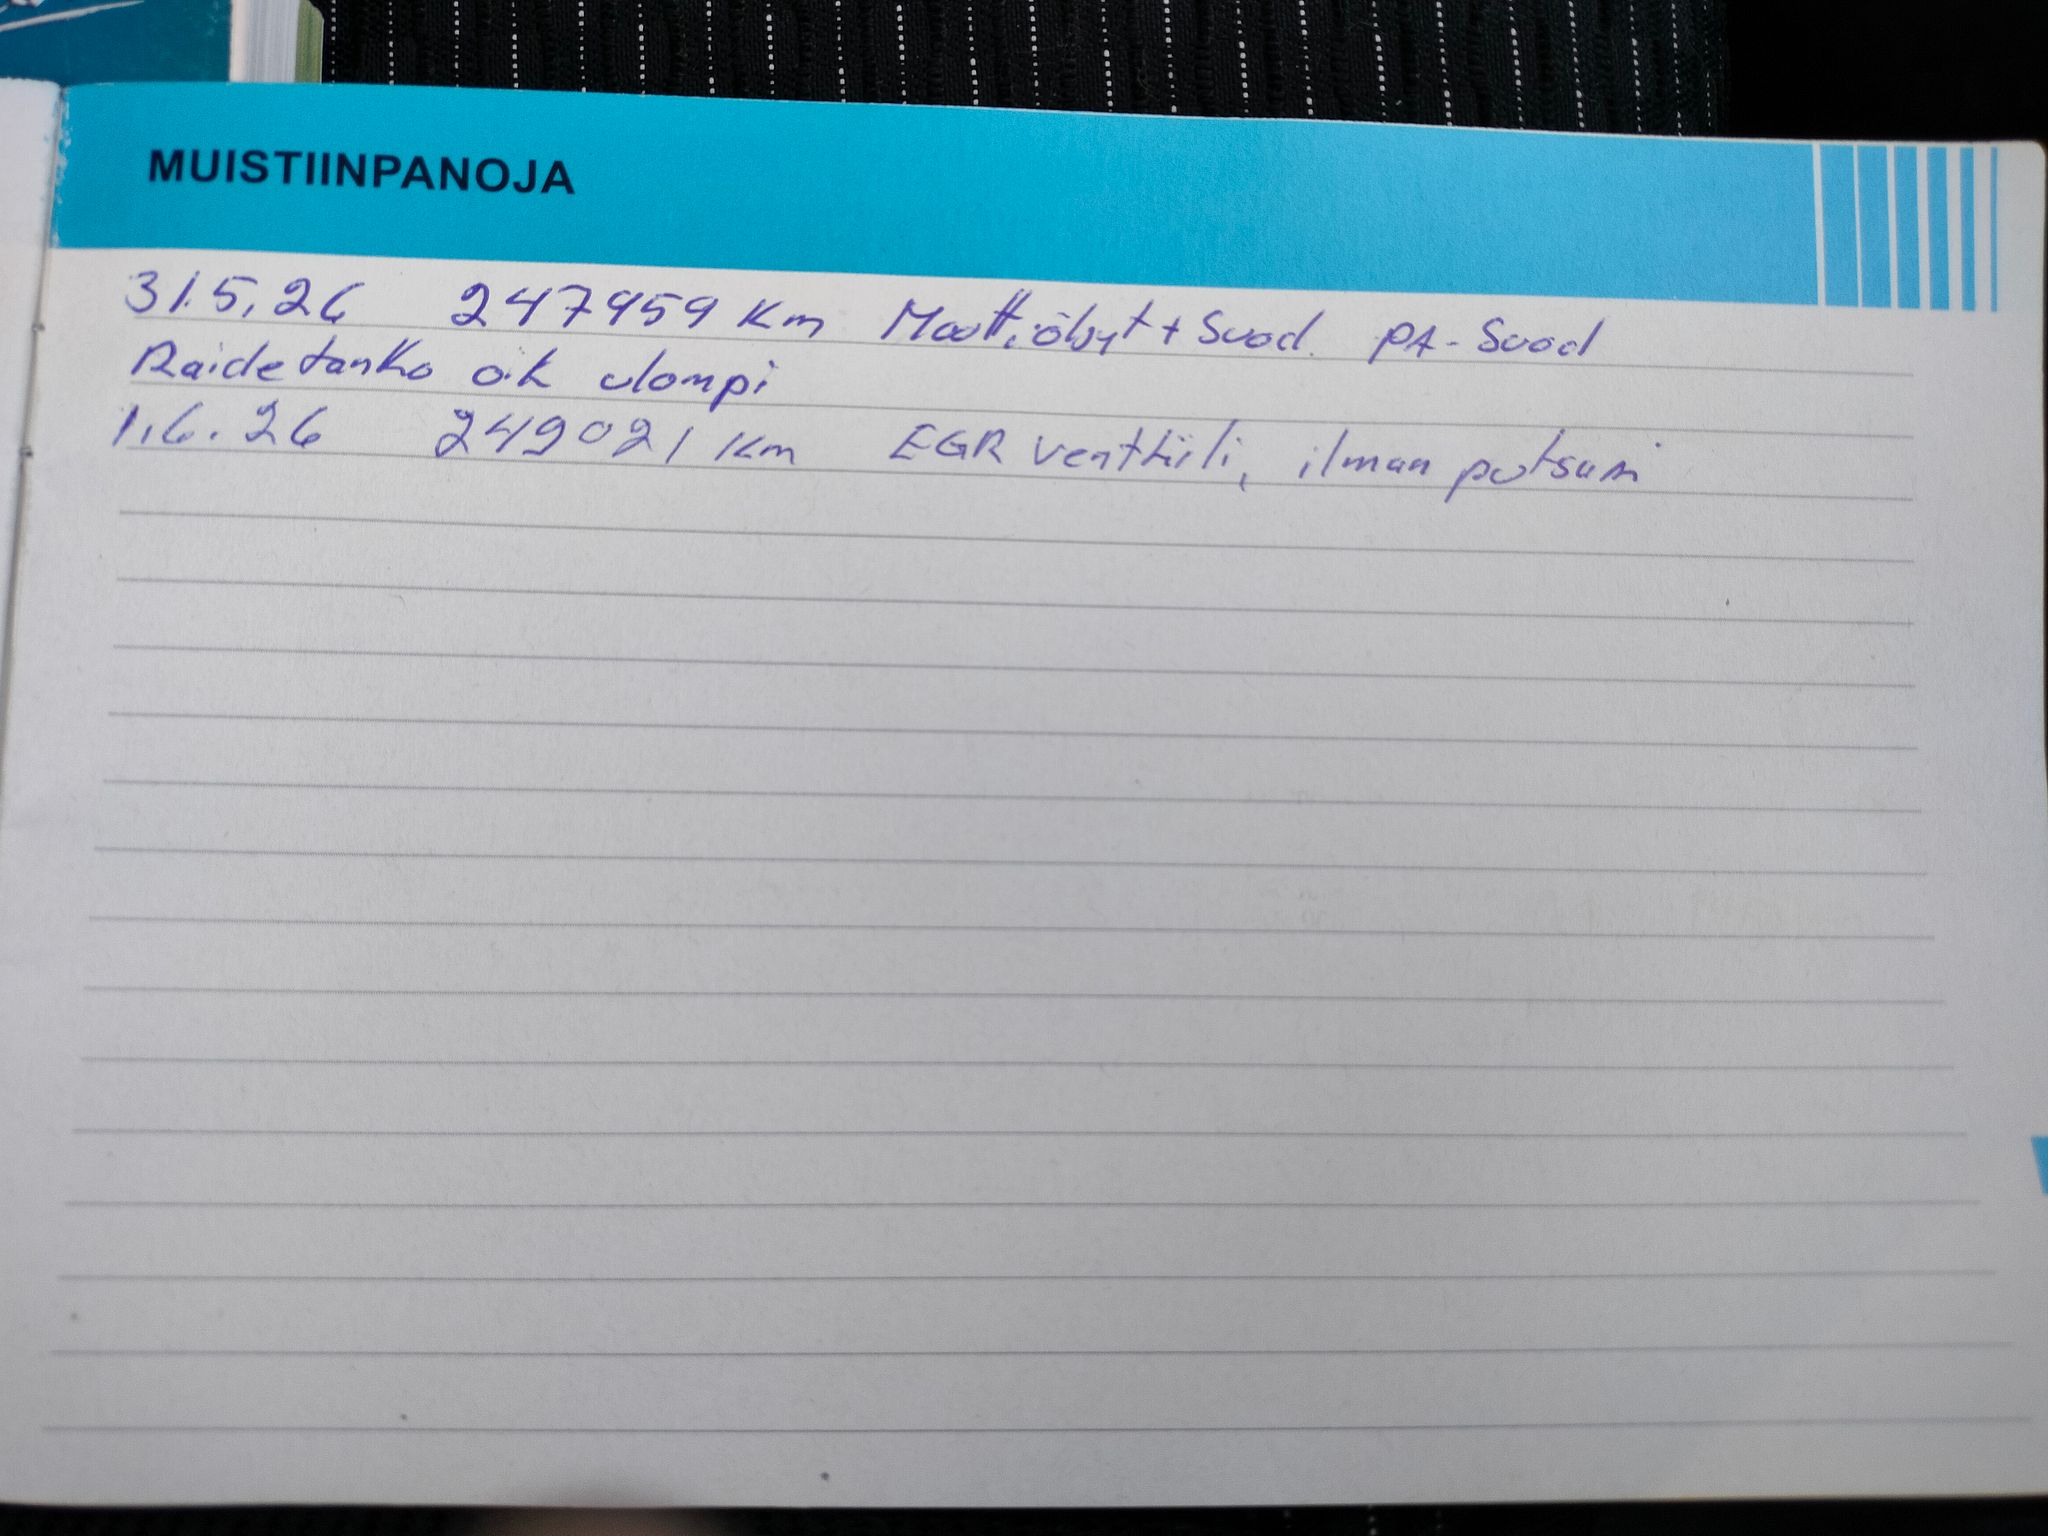 MUISTIINPANOJA
31.5.26 247959 km Moott.öljyt + Suod. PA-Suod
Raidetanko oik ulompi
1.6.26 249021 km EGR venttiili, ilman putsari